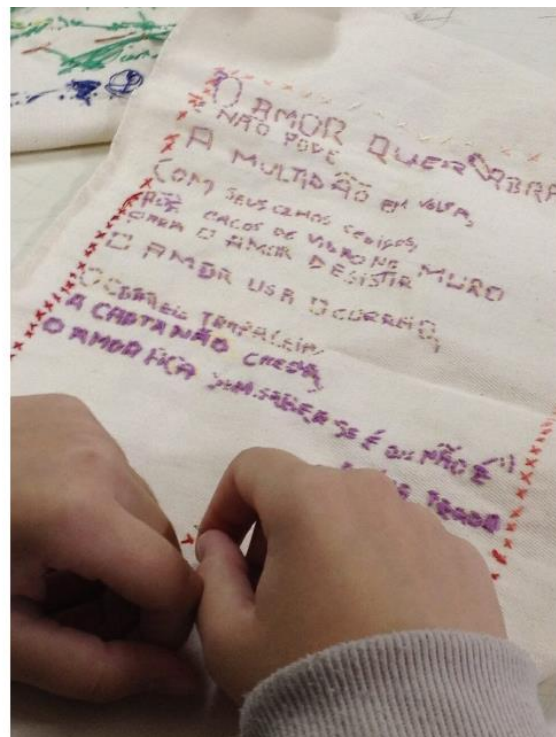 O AMOR QUER ABRA
E NÃO PODE
A MULTIDÃO EM VOLTA,
COM SEUS CEDIÇOS,
PÕE CACOS DE VIDRO NO MURO
PARA O AMOR DESISTIR
O AMOR USA O CORREIO,
O CORREIO TRAPACEIA,
A CARTA NÃO CHEGA,
O AMOR FICA SEM SABER SE É OU NÃO É
PRADO